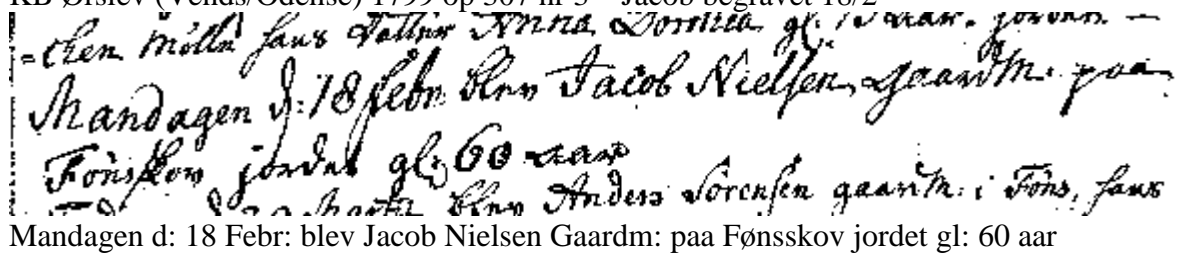 KB Ørslev (Vends/Odense) 1799 op 307 nr 3 Jacob begravet 18/2
-chen Mölle hans Datter Anna Dorthea gl: aar. jordet
Mandagen d: 18 Febr: blev Jacob Nielsen Gaardm: paa
Fönsskov jordet gl: 60 aar
blev Anders Sörensen gaardm: i Föns, hans
Mandagen d: 18 Febr: blev Jacob Nielsen Gaardm: paa Fønsskov jordet gl: 60 aar